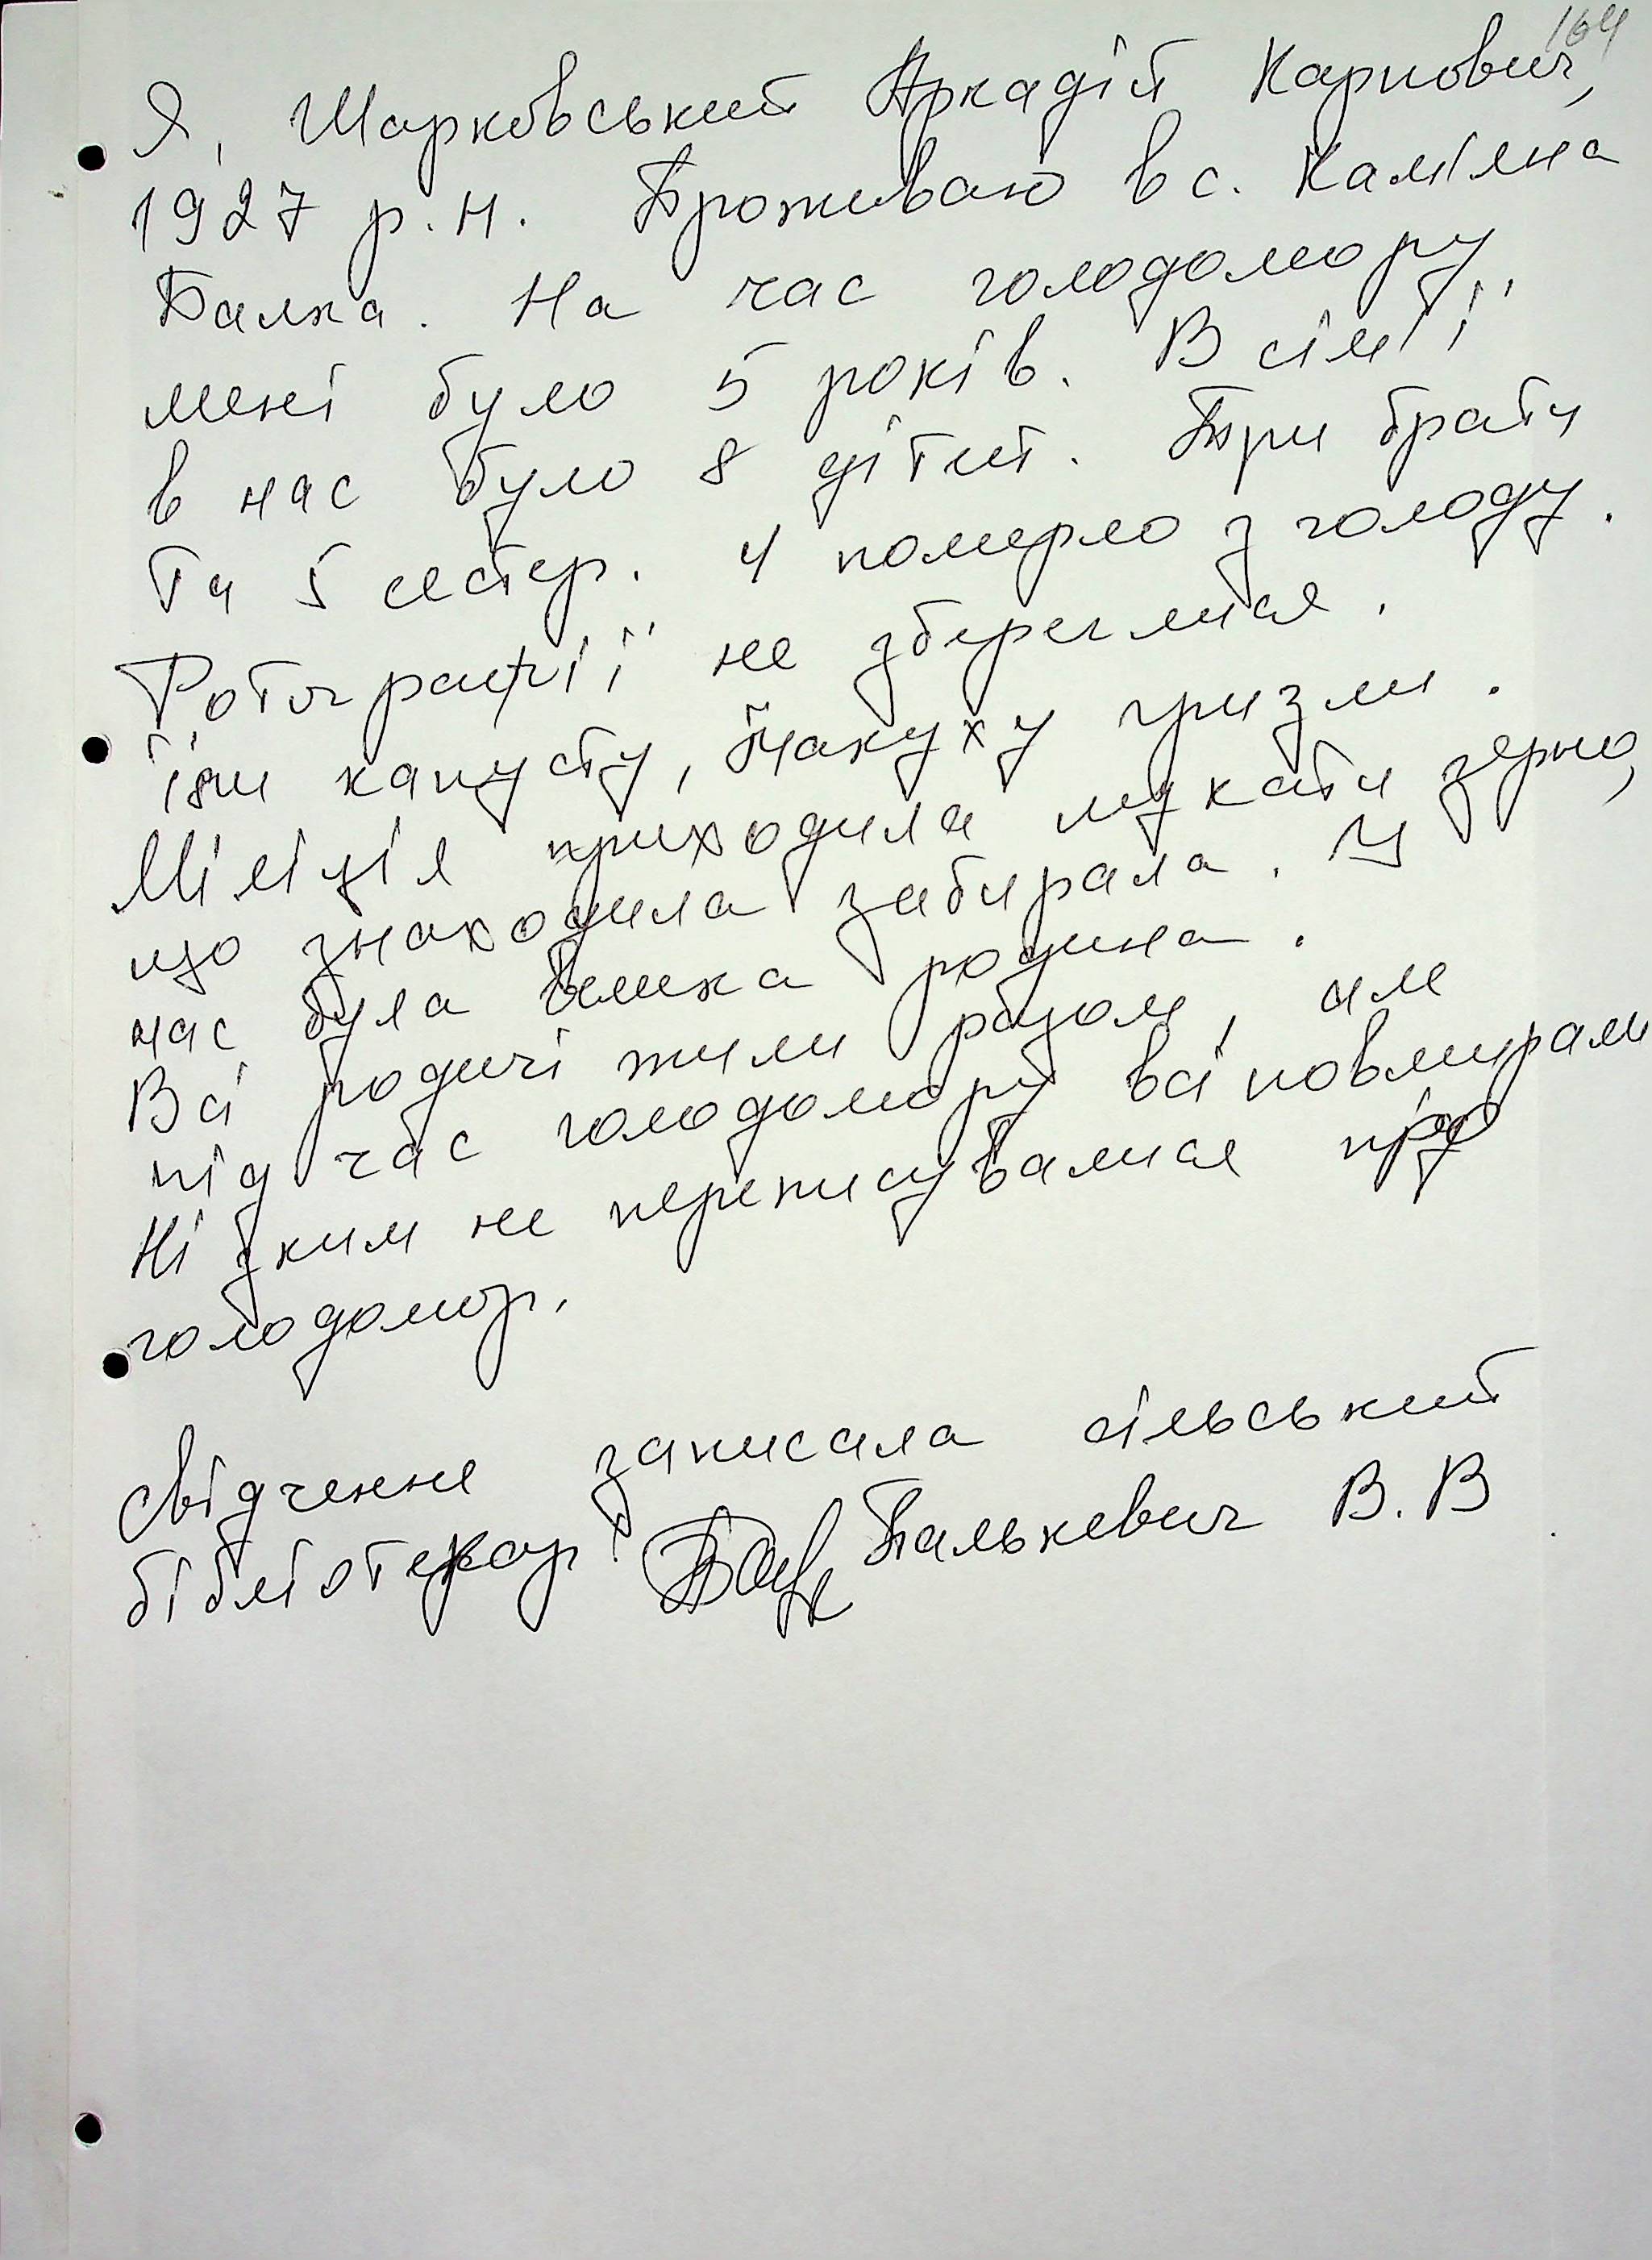 164
Я, Шарковський Аркадій Карпович,
1927 р.н. Проживаю в с. Кам'яна
Балка. На час голодомору
мені було 5 років. В сім'ї
в нас було 8 дітей. Три брати
та 5 сестер. 4 померло з голоду.
Фотографії не збереглися.
Їли капусту, макуху гризли.
Міліція приходила шукати зерно,
що знаходила забирала. У
нас була велика родина.
Всі родичі жили разом, але
під час голодомору всі повмирали
Ні з ким не переписувалися про
голодомор.
Свідчення записала сільський
бібліотекар: Палькевич В. В